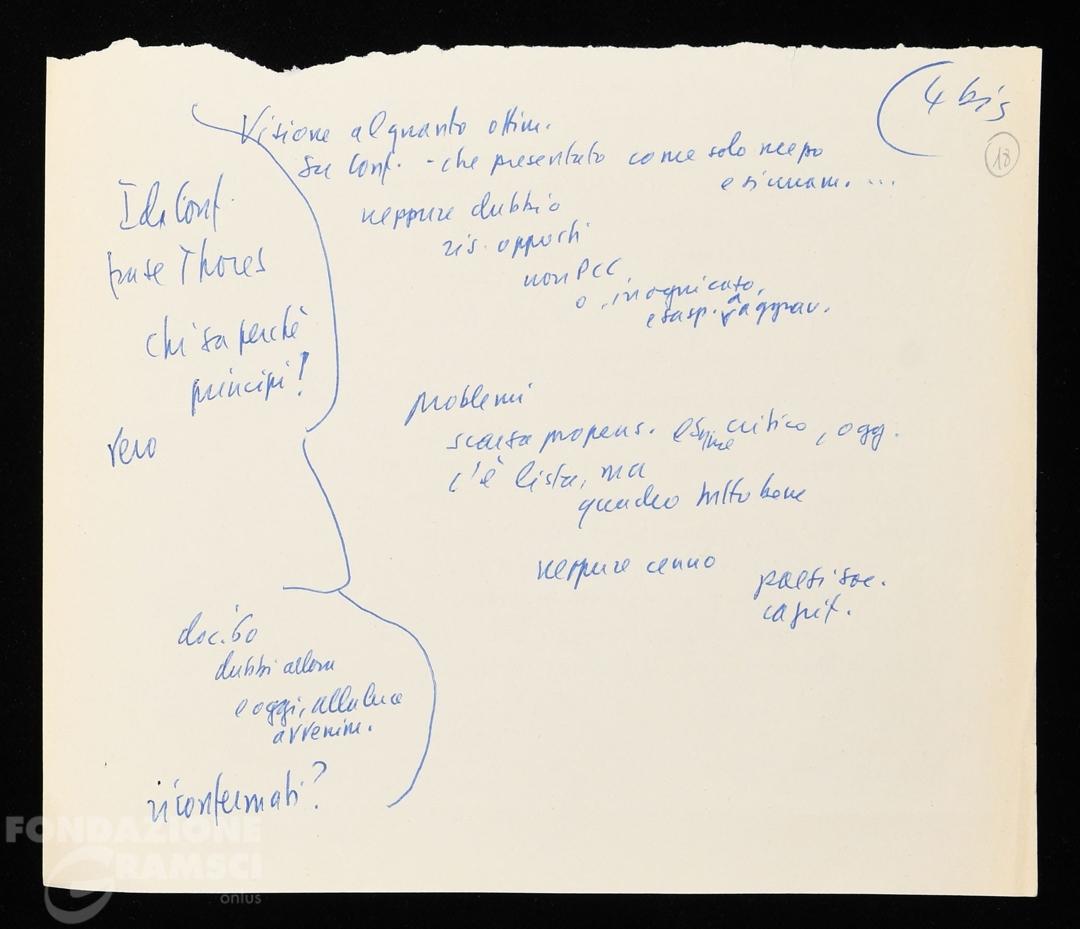 4 bis
18
Visione alquanto ottim.
su Conf. - che presentato come solo
e si unam. ...
neppure dubbio
ris. opposti
non PCC
o
esasp. aggrav.
problemi
scarsa propens. esame critico, ogg.
c'è lista, ma
quadro tutto bene
neppure cenno
paesi soc.
capit.
Conf.
frase Thores
chi sa perché
principi!
vero
doc. 60
dubbi allora
e oggi, alla luce
avvenim.
riconfermati?
FONDAZIONE
GRAMSCI
onlus